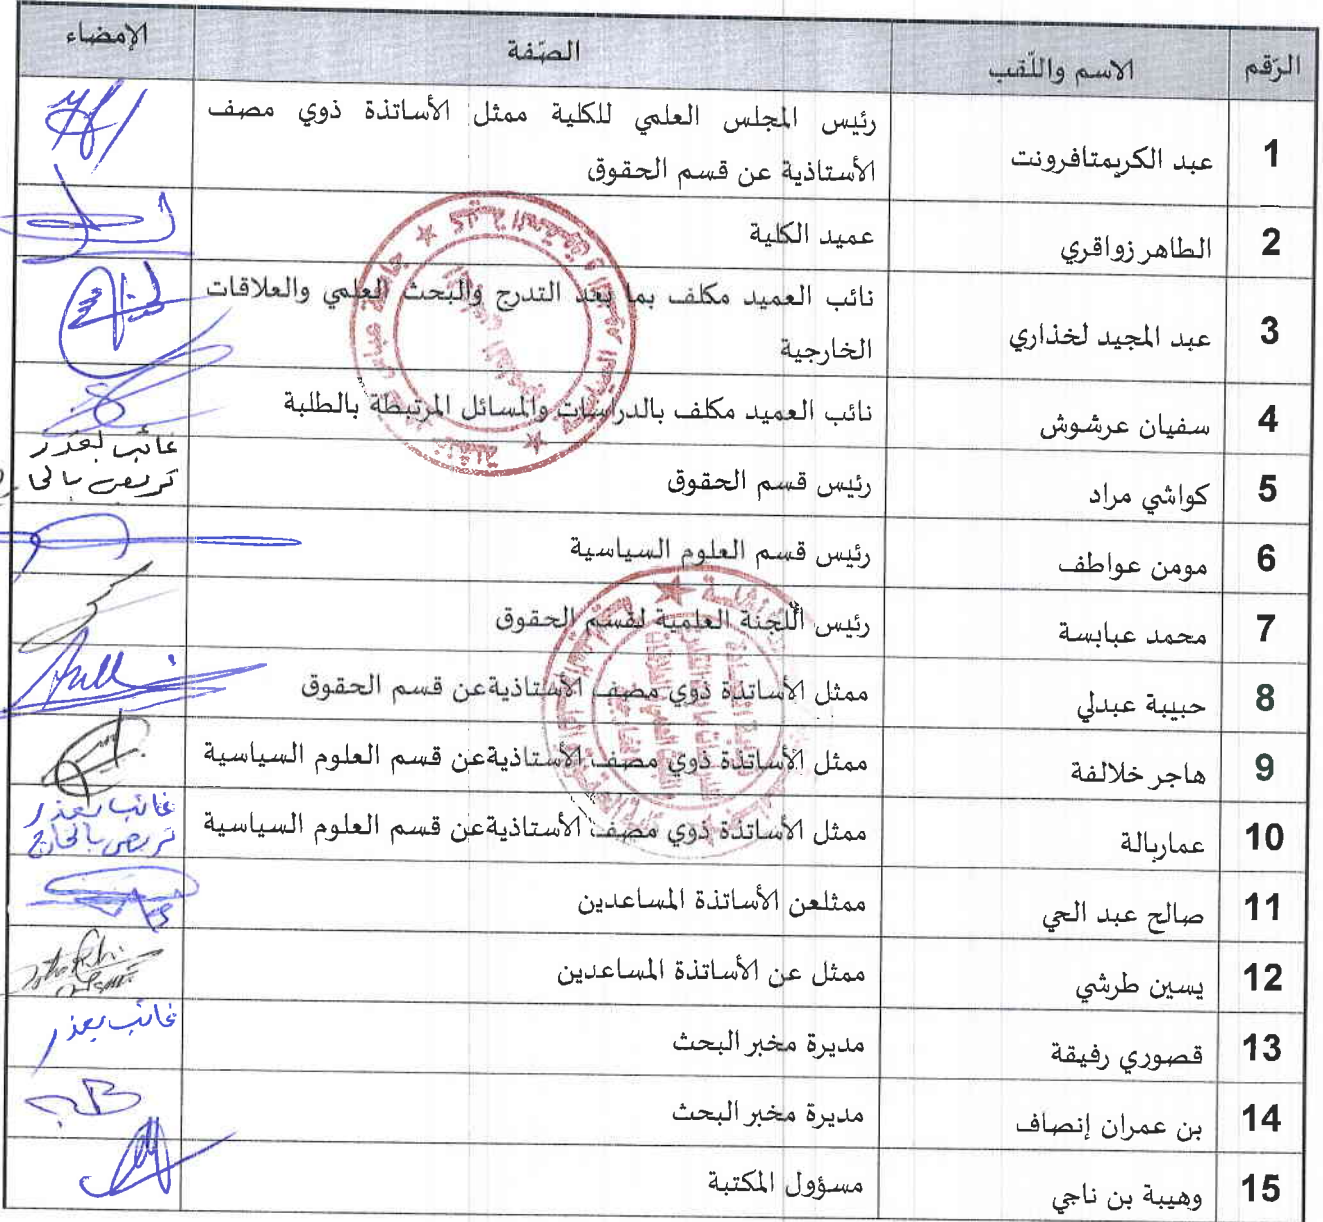 الرّقم الاسم واللّقب الصّفة الإمضاء
1 عبد الكريمتافرونت رئيس المجلس العلمي للكلية ممثل الأساتذة ذوي مصف
الأستاذية عن قسم الحقوق
2 الطاهر زواقري عميد الكلية
3 عبد المجيد لخذاري نائب العميد مكلف بما بعد التدرج والبحث العلمي والعلاقات
الخارجية
4 سفيان عرشوش نائب العميد مكلف بالدراسات والمسائل المرتبطة بالطلبة
5 كواشي مراد رئيس قسم الحقوق غائب لعذر
تربص بالخا
6 مومن عواطف رئيس قسم العلوم السياسية
7 محمد عبابسة رئيس اللّجنة العلمية لقسم الحقوق
8 حبيبة عبدلي ممثل الأساتذة ذوي مصف الأستاذيةعن قسم الحقوق
9 هاجر خلالفة ممثل الأساتذة ذوي مصف الأستاذيةعن قسم العلوم السياسية
10 عماربالة ممثل الأساتذة ذوي مصف الأستاذيةعن قسم العلوم السياسية غائب بعذر
تربص بالخارج
11 صالح عبد الحي ممثلعن الأساتذة المساعدين
12 يسين طرشي ممثل عن الأساتذة المساعدين
13 قصوري رفيقة مديرة مخبر البحث غائب بعذر
14 بن عمران إنصاف مديرة مخبر البحث
15 وهيبة بن ناجي مسؤول المكتبة